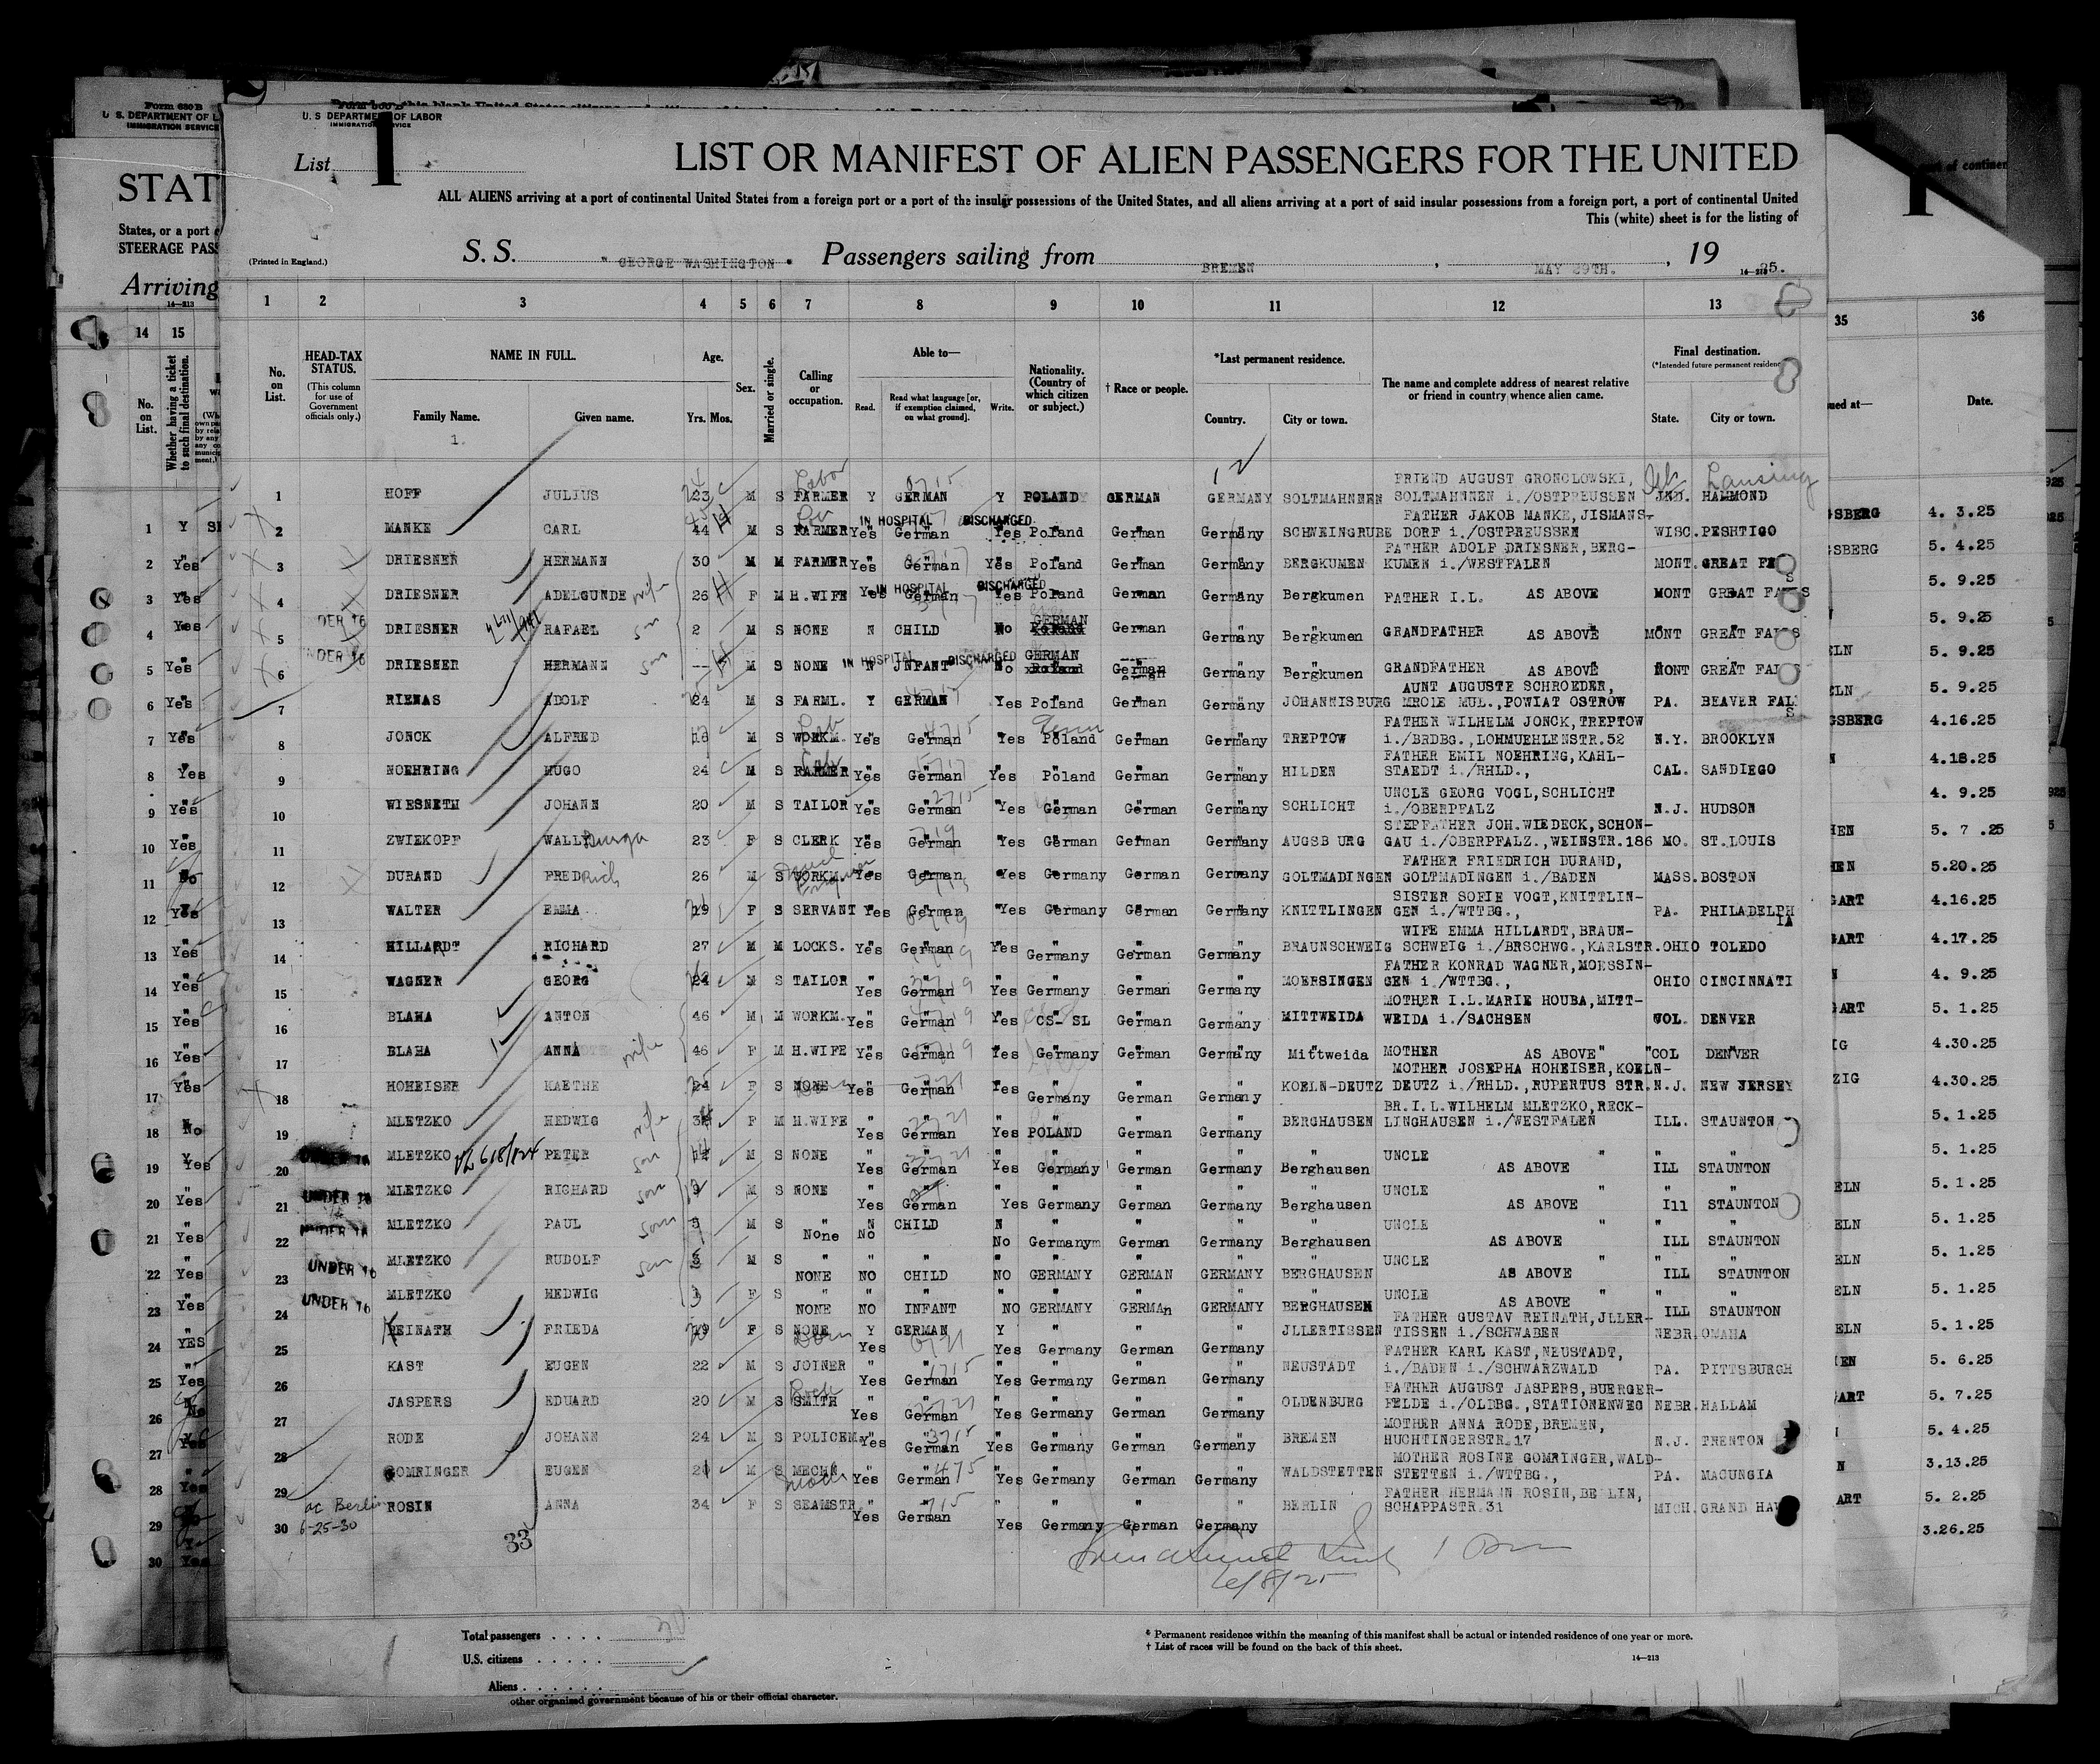 Form 630 B
U. S. DEPARTMENT OF L
IMMIGRATION SERVICE
U. S DEPARTMENT OF LABOR
IMMIGRATION SERVICE
List 1
LIST OR MANIFEST OF ALIEN PASSENGERS FOR THE UNITED
STAT
ALL ALIENS arriving at a port of continental United States from a foreign port or a port of the insular possessions of the United States, and all aliens arriving at a port of said insular possessions from a foreign port, a port of continental United
This (white) sheet is for the listing of
States, or a port
STEERAGE PASS
Arriving
(Printed in England.)
S. S. " GEORGE WASHINGTON " Passengers sailing from BREMEN , MAY 29TH. , 19 25.
1 2 3 4 5 6 7 8 9 10 11 12 13
14 15
35 36
No. on List.
HEAD-TAX STATUS. (This column for use of Government officials only.)
NAME IN FULL.
Family Name. Given name.
Age.
Yrs. Mos.
Sex.
Married or single.
Calling or occupation.
Able to—
Read. Read what language [or, if exemption claimed, on what ground]. Write.
Nationality. (Country of which citizen or subject.)
† Race or people.
*Last permanent residence.
Country. City or town.
The name and complete address of nearest relative or friend in country whence alien came.
Final destination.
(*Intended future permanent residence
State. City or town.
No. on List.
Whether having a ticket to such final destination.
Date.
1 HOFF JULIUS 23 M S FARMER Y GERMAN Y POLAND GERMAN GERMANY SOLTMAHNNEN FRIEND AUGUST GRONOLOWSKI, SOLTMAHNNEN i./OSTPREUSSEN IND. HAMMOND Lansing
2 MANKE CARL 44 M S FARMER Yes German Yes Poland German Germany SCHWEINGRUBE FATHER JAKOB MANKE, JISMANS-DORF i./OSTPREUSSEN WISC. PESHTIGO
IN HOSPITAL DISCHARGED
3 DRIESNER HERMANN 30 M M FARMER Yes German Yes Poland German Germany BERGKUMEN FATHER ADOLF DRIESNER, BERG-KUMEN i./WESTFALEN MONT. GREAT
4 DRIESNER ADELGUNDE wife 26 F M H.WIFE Yes German Yes Poland German Germany Bergkumen FATHER I.L. AS ABOVE MONT GREAT
IN HOSPITAL DISCHARGED
5 DRIESNER RAFAEL son 2 M S NONE N CHILD No GERMAN German Germany Bergkumen GRANDFATHER AS ABOVE MONT GREAT FALLS
6 DRIESNER HERMANN son -- M S NONE N INFANT No GERMAN German Germany Bergkumen GRANDFATHER AS ABOVE MONT GREAT
IN HOSPITAL DISCHARGED
7 RIENAS ADOLF 24 M S FARML. Y GERMAN Yes Poland German Germany JOHANNISBURG AUNT AUGUSTE SCHROEDER, MROLE MUL., POWIAT OSTROW PA. BEAVER FAL S
8 JONCK ALFRED M S WORKM. Yes German Yes Poland German Germany TREPTOW FATHER WILHELM JONCK, TREPTOW i./BRDBG., LOHMUEHLENSTR.52 N.Y. BROOKLYN
9 NOEHRING HUGO 24 M S FARMER Yes German Yes Poland German Germany HILDEN FATHER EMIL NOEHRING, KAHL-STAEDT i./RHLD., CAL. SANDIEGO
10 WIESNETH JOHANN 20 M S TAILOR Yes German Yes German German Germany SCHLICHT UNCLE GEORG VOGL, SCHLICHT i./OBERPFALZ N.J. HUDSON
11 ZWIEKOPF WALLburga 23 F S CLERK Yes German Yes German German Germany AUGSB URG STEPFATHER JOH. WIEDECK, SCHON-GAU i./OBERPFALZ., WEINSTR.186 MO. ST.LOUIS
12 DURAND FREDRich 26 M S WORKM. Yes German Yes Germany German Germany GOLTMADINGEN FATHER FRIEDRICH DURAND, GOLTMADINGEN i./BADEN MASS. BOSTON
13 WALTER EMMA 19 F S SERVANT Yes German Yes Germany German Germany KNITTLINGEN SISTER SOFIE VOGT, KNITTLIN-GEN i./WTTBG., PA. PHILADELPH IA
14 HILLARDT RICHARD 27 M M LOCKS. Yes German Yes Germany German Germany BRAUNSCHWEIG WIFE EMMA HILLARDT, BRAUN-SCHWEIG i./BRSCHWG., KARLSTR. OHIO TOLEDO
15 WAGNER GEORG 24 M S TAILOR Yes German Yes Germany German Germany MOERSINGEN FATHER KONRAD WAGNER, MOESSIN-GEN i./WTTBG., OHIO CINCINNATI
16 BLAHA ANTON 46 M M WORKM. Yes German Yes CS- SL German Germany MITTWEIDA MOTHER I.L. MARIE HOUBA, MITT-WEIDA i./SACHSEN COL. DENVER
17 BLAHA ANNA wife 46 F M H.WIFE Yes German Yes Germany German Germany Mittweida MOTHER AS ABOVE COL DENVER
18 HOHEISER KAETHE 24 F S NONE Yes German Yes Germany German Germany KOELN-DEUTZ MOTHER JOSEPHA HOHEISER, KOELN-DEUTZ i./RHLD., RUPERTUS STR. N.J. NEW JERSEY
19 MLETZKO HEDWIG wife F M H.WIFE Yes German Yes POLAND German Germany BERGHAUSEN BR. I.L. WILHELM MLETZKO, RECK-LINGHAUSEN i./WESTFALEN ILL. STAUNTON
20 MLETZKO PETER son M S NONE Yes German Yes Germany German Germany Berghausen UNCLE AS ABOVE ILL STAUNTON
21 UNDER 16 MLETZKO RICHARD son 9 M S NONE Yes German Yes Germany German Germany Berghausen UNCLE AS ABOVE Ill STAUNTON
22 UNDER 16 MLETZKO PAUL son M S None No CHILD No Germanym German Germany Berghausen UNCLE AS ABOVE ILL STAUNTON
23 UNDER 16 MLETZKO RUDOLF son 3 M S NONE NO CHILD NO GERMANY GERMAN GERMANY BERGHAUSEN UNCLE AS ABOVE ILL STAUNTON
24 UNDER 16 MLETZKO HEDWIG F S NONE NO INFANT NO GERMANY GERMAn GERMANY BERGHAUSEN UNCLE AS ABOVE ILL STAUNTON
25 REINATH FRIEDA F S NONE Yes GERMAN Yes Germany German Germany JLLERTISSEN FATHER GUSTAV REINATH, JLLER-TISSEN i./SCHWABEN NEBR. OMAHA
26 KAST EUGEN 22 M S JOINER Yes German Yes Germany German Germany NEUSTADT FATHER KARL KAST, NEUSTADT, i./BADEN i./SCHWARZWALD PA. PITTSBURGH
27 JASPERS EDUARD 20 M S SMITH Yes German Yes Germany German Germany OLDENBURG FATHER AUGUST JASPERS, BUERGER-FELDE i./OLDBG., STATIONENWEG NEBR. HALLAM
28 RODE JOHANN 24 M S POLICEM. Yes German Yes Germany German Germany BREMEN MOTHER ANNA RODE, BREMEN, HUCHTINGERSTR.17 N.J. TRENTON
29 GOMRINGER EUGEN M S MECHN. Yes German Yes Germany German Germany WALDSTETTEN MOTHER ROSINE GOMRINGER, WALD-STETTEN i./WTTBG., PA. MACUNGIA
30 ac Berlin 6-25-30 ROSIN ANNA 34 F S SEAMSTR. Yes German Yes Germany German Germany BERLIN FATHER HERMANN ROSIN, BERLIN, SCHAPPASTR.31 MICH. GRAND HAV
33
6/8/25
4. 3.25
5. 4.25
5. 9.25
5. 9.25
5. 9.25
5. 9.25
4.16.25
4.18.25
4. 9.25
5. 7 .25
5.20.25
4.16.25
4.17.25
4. 9.25
5. 1.25
4.30.25
4.30.25
5. 1.25
5. 1.25
5. 1.25
5. 1.25
5. 1.25
5. 1.25
5. 1.25
5. 6.25
5. 7.25
5. 4.25
3.13.25
5. 2.25
3.26.25
Total passengers . . . . 30
U.S. citizens . . . . .
Aliens . . . . . .
* Permanent residence within the meaning of this manifest shall be actual or intended residence of one year or more.
† List of races will be found on the back of this sheet.
14—213
other organized government because of his or their official character.